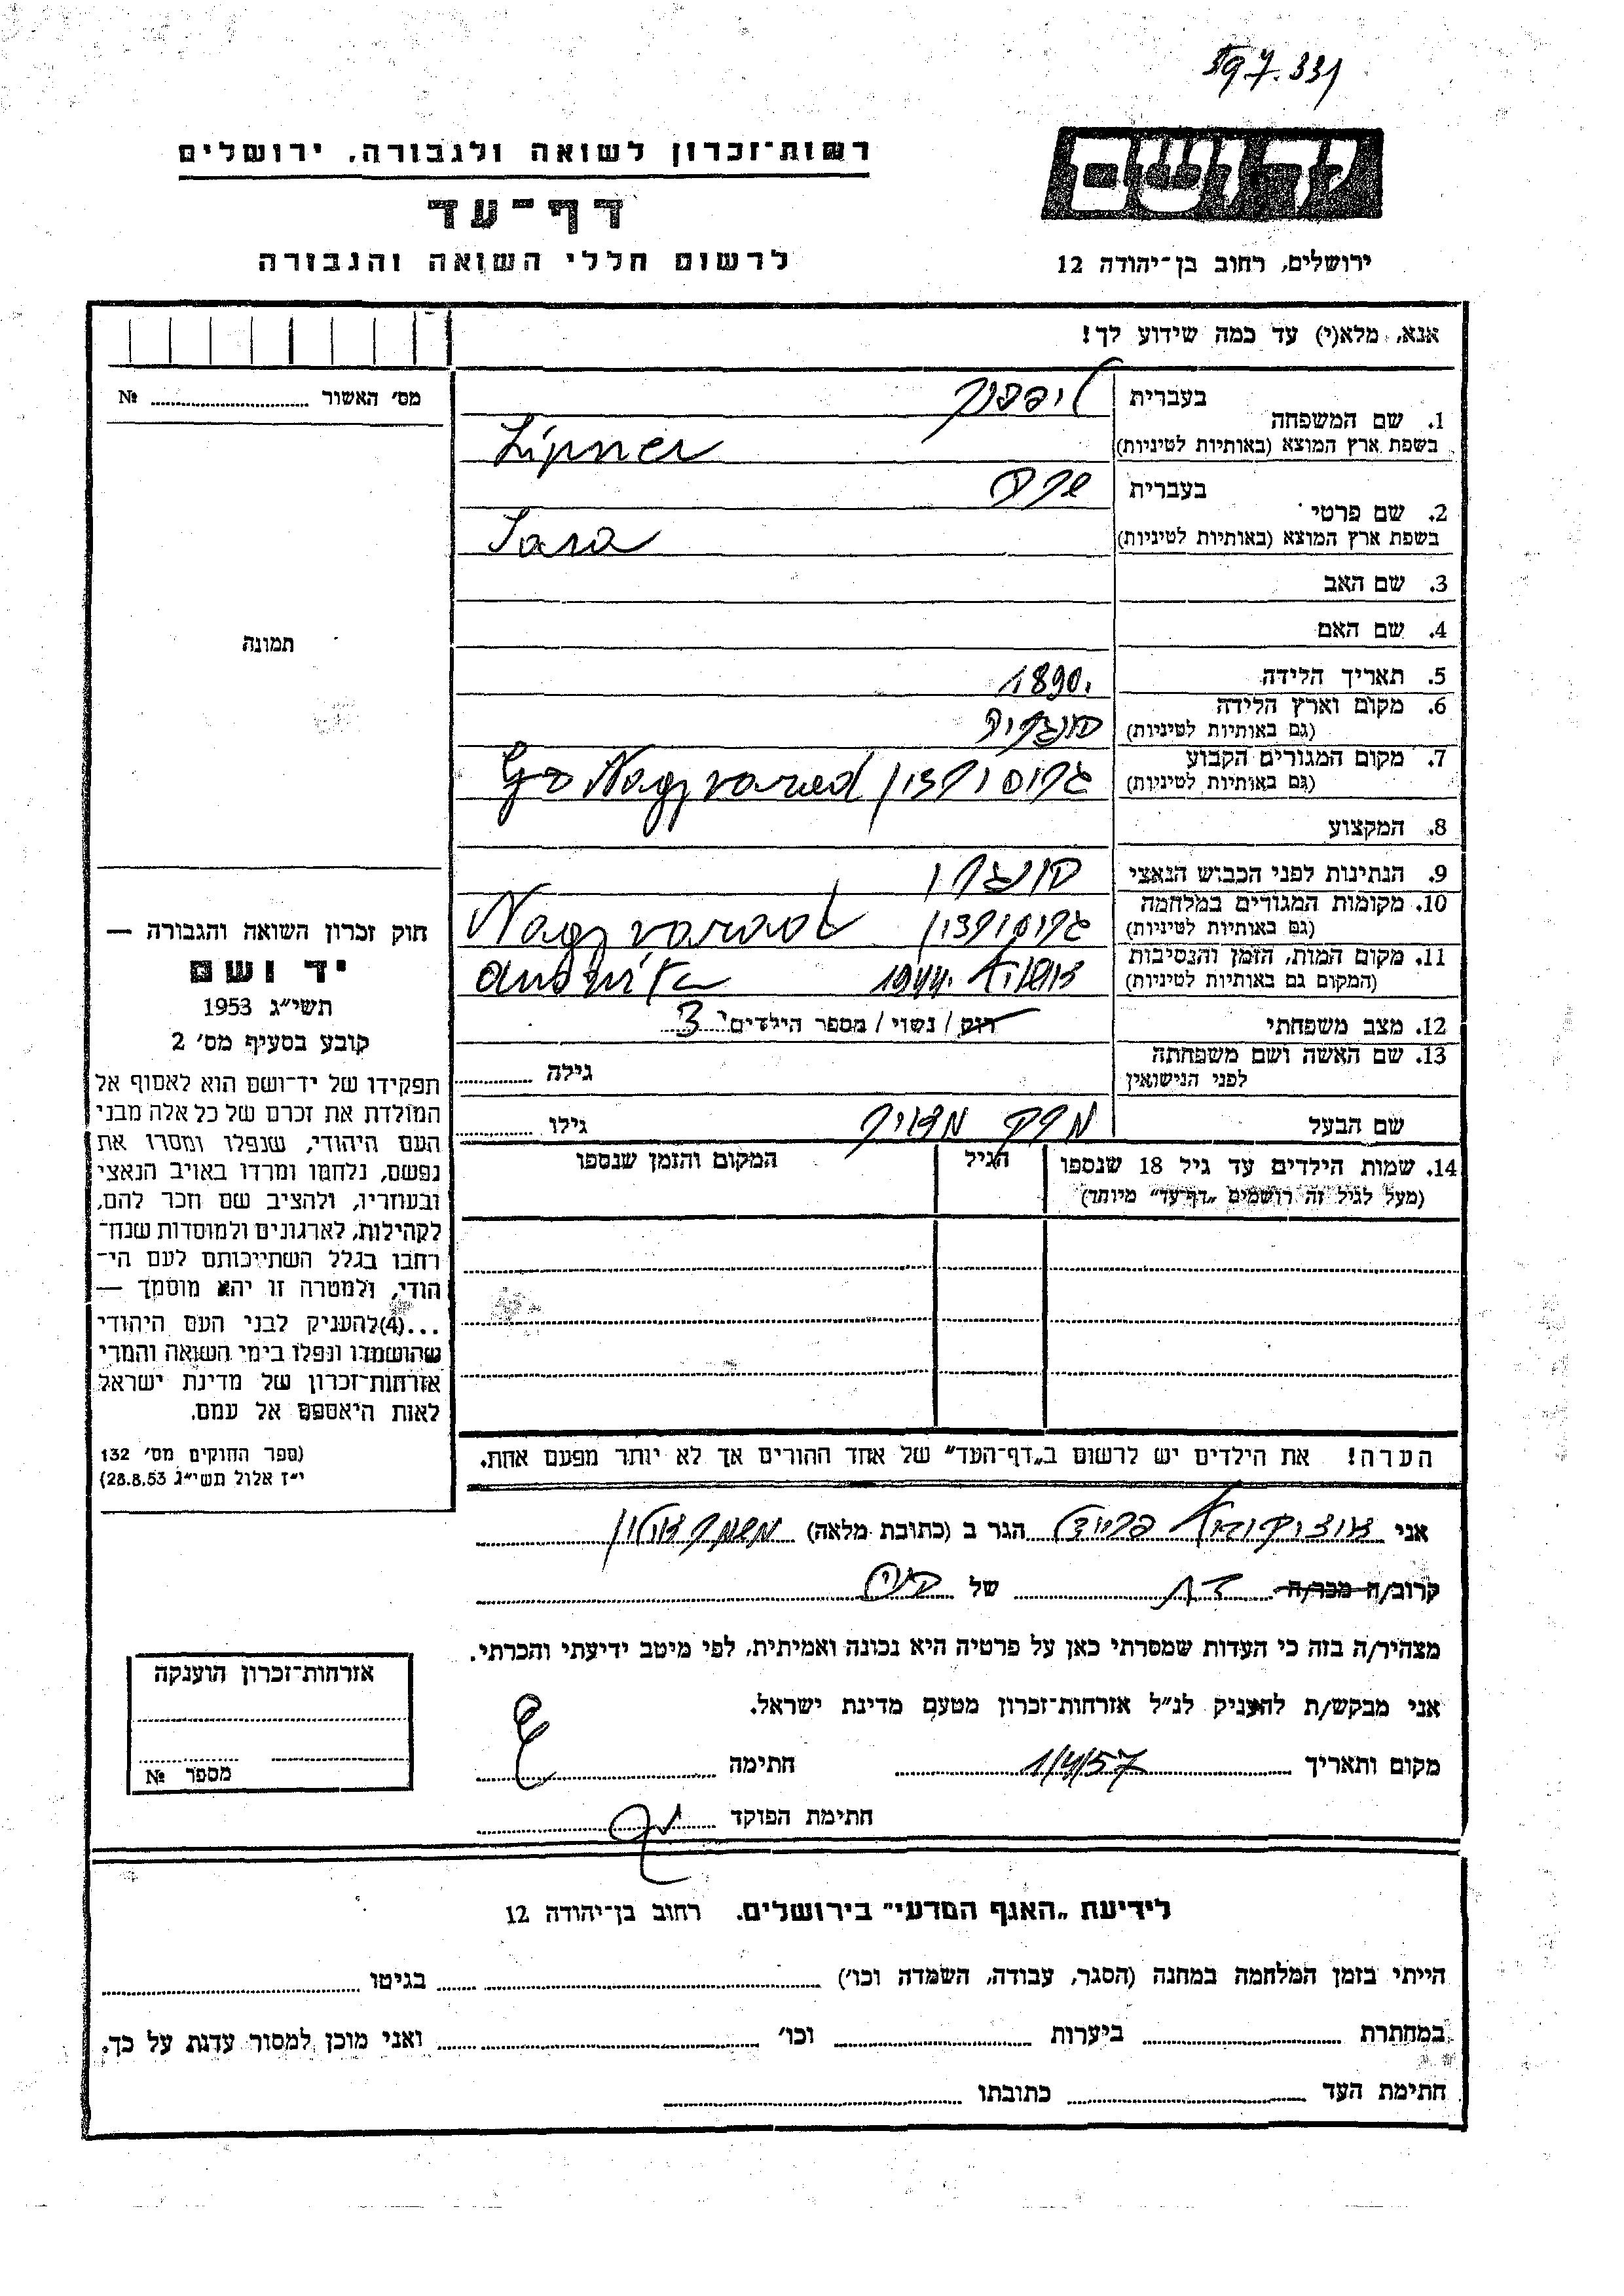 597.331
רשות־זכרון לשואה ולגבורה, ירושלים
יד ושם
דף־עד
לרשום חללי השואה והגבורה
ירושלים, רחוב בן־יהודה 12
אנא, מלא(י) עד כמה שידוע לך!
מס׳ האשור № 
1. שם המשפחה
בעברית ליפנר
בשפת ארץ המוצא (באותיות לטיניות) Lipner
2. שם פרטי
בעברית שרה
בשפת ארץ המוצא (באותיות לטיניות) Sara
3. שם האב
4. שם האם
תמונה
5. תאריך הלידה 1890.
6. מקום וארץ הלידה
(גם באותיות לטיניות)
7. מקום המגורים הקבוע
(גם באותיות לטיניות) גרוסורדין Nagyvared
8. המקצוע
9. הנתינות לפני הכבוש הנאצי
10. מקומות המגורים במלחמה
(גם באותיות לטיניות) גרוסורדין Nagyvarad
11. מקום המות, הזמן והנסיבות
(המקום גם באותיות לטיניות) 1944.
12. מצב משפחתי רווק / נשוי / מספר הילדים 3
13. שם האשה ושם משפחתה
לפני הנישואין גילה
שם הבעל גילו
14. שמות הילדים עד גיל 18 שנספו הגיל המקום והזמן שנספו
(מעל לגיל זה רושמים „דף־עד״ מיוחד)
הערה! את הילדים יש לרשום ב„דף־העד״ של אחד ההורים אך לא יותר מפעם אחת.
חוק זכרון השואה והגבורה —
יד ושם
תשי״ג 1953
קובע בסעיף מס׳ 2
תפקידו של יד־ושם הוא לאסוף אל
המולדת את זכרם של כל אלה מבני
העם היהודי, שנפלו ומסרו את
נפשם, נלחמו ומרדו באויב הנאצי
ובעוזריו, ולהציב שם וזכר להם,
לקהילות, לארגונים ולמוסדות שנח־
רבו בגלל השתייכותם לעם הי־
הודי, ולמטרה זו יהא מוסמך —
...(4)להעניק לבני העם היהודי
שהושמדו ונפלו בימי השואה והמרי
אזרחות־זכרון של מדינת ישראל
לאות היאספם אל עמם.
(ספר החוקים מס׳ 132
י״ז אלול תשי״ג 28.8.53)
אני הגר ב (כתובת מלאה)
קרוב/ה מכר/ה של
מצהיר/ה בזה כי העדות שמסרתי כאן על פרטיה היא נכונה ואמיתית, לפי מיטב ידיעתי והכרתי.
אני מבקש/ת להעניק לנ״ל אזרחות־זכרון מטעם מדינת ישראל.
מקום ותאריך 1/4/57 חתימה
חתימת הפוקד
אזרחות־זכרון הוענקה
מספר №
לידיעת „האגף המדעי״ בירושלים. רחוב בן־יהודה 12
הייתי בזמן המלחמה במחנה (הסגר, עבודה, השמדה וכו׳) בגיטו
במחתרת ביערות וכו׳ ואני מוכן למסור עדות על כך.
חתימת העד כתובתו